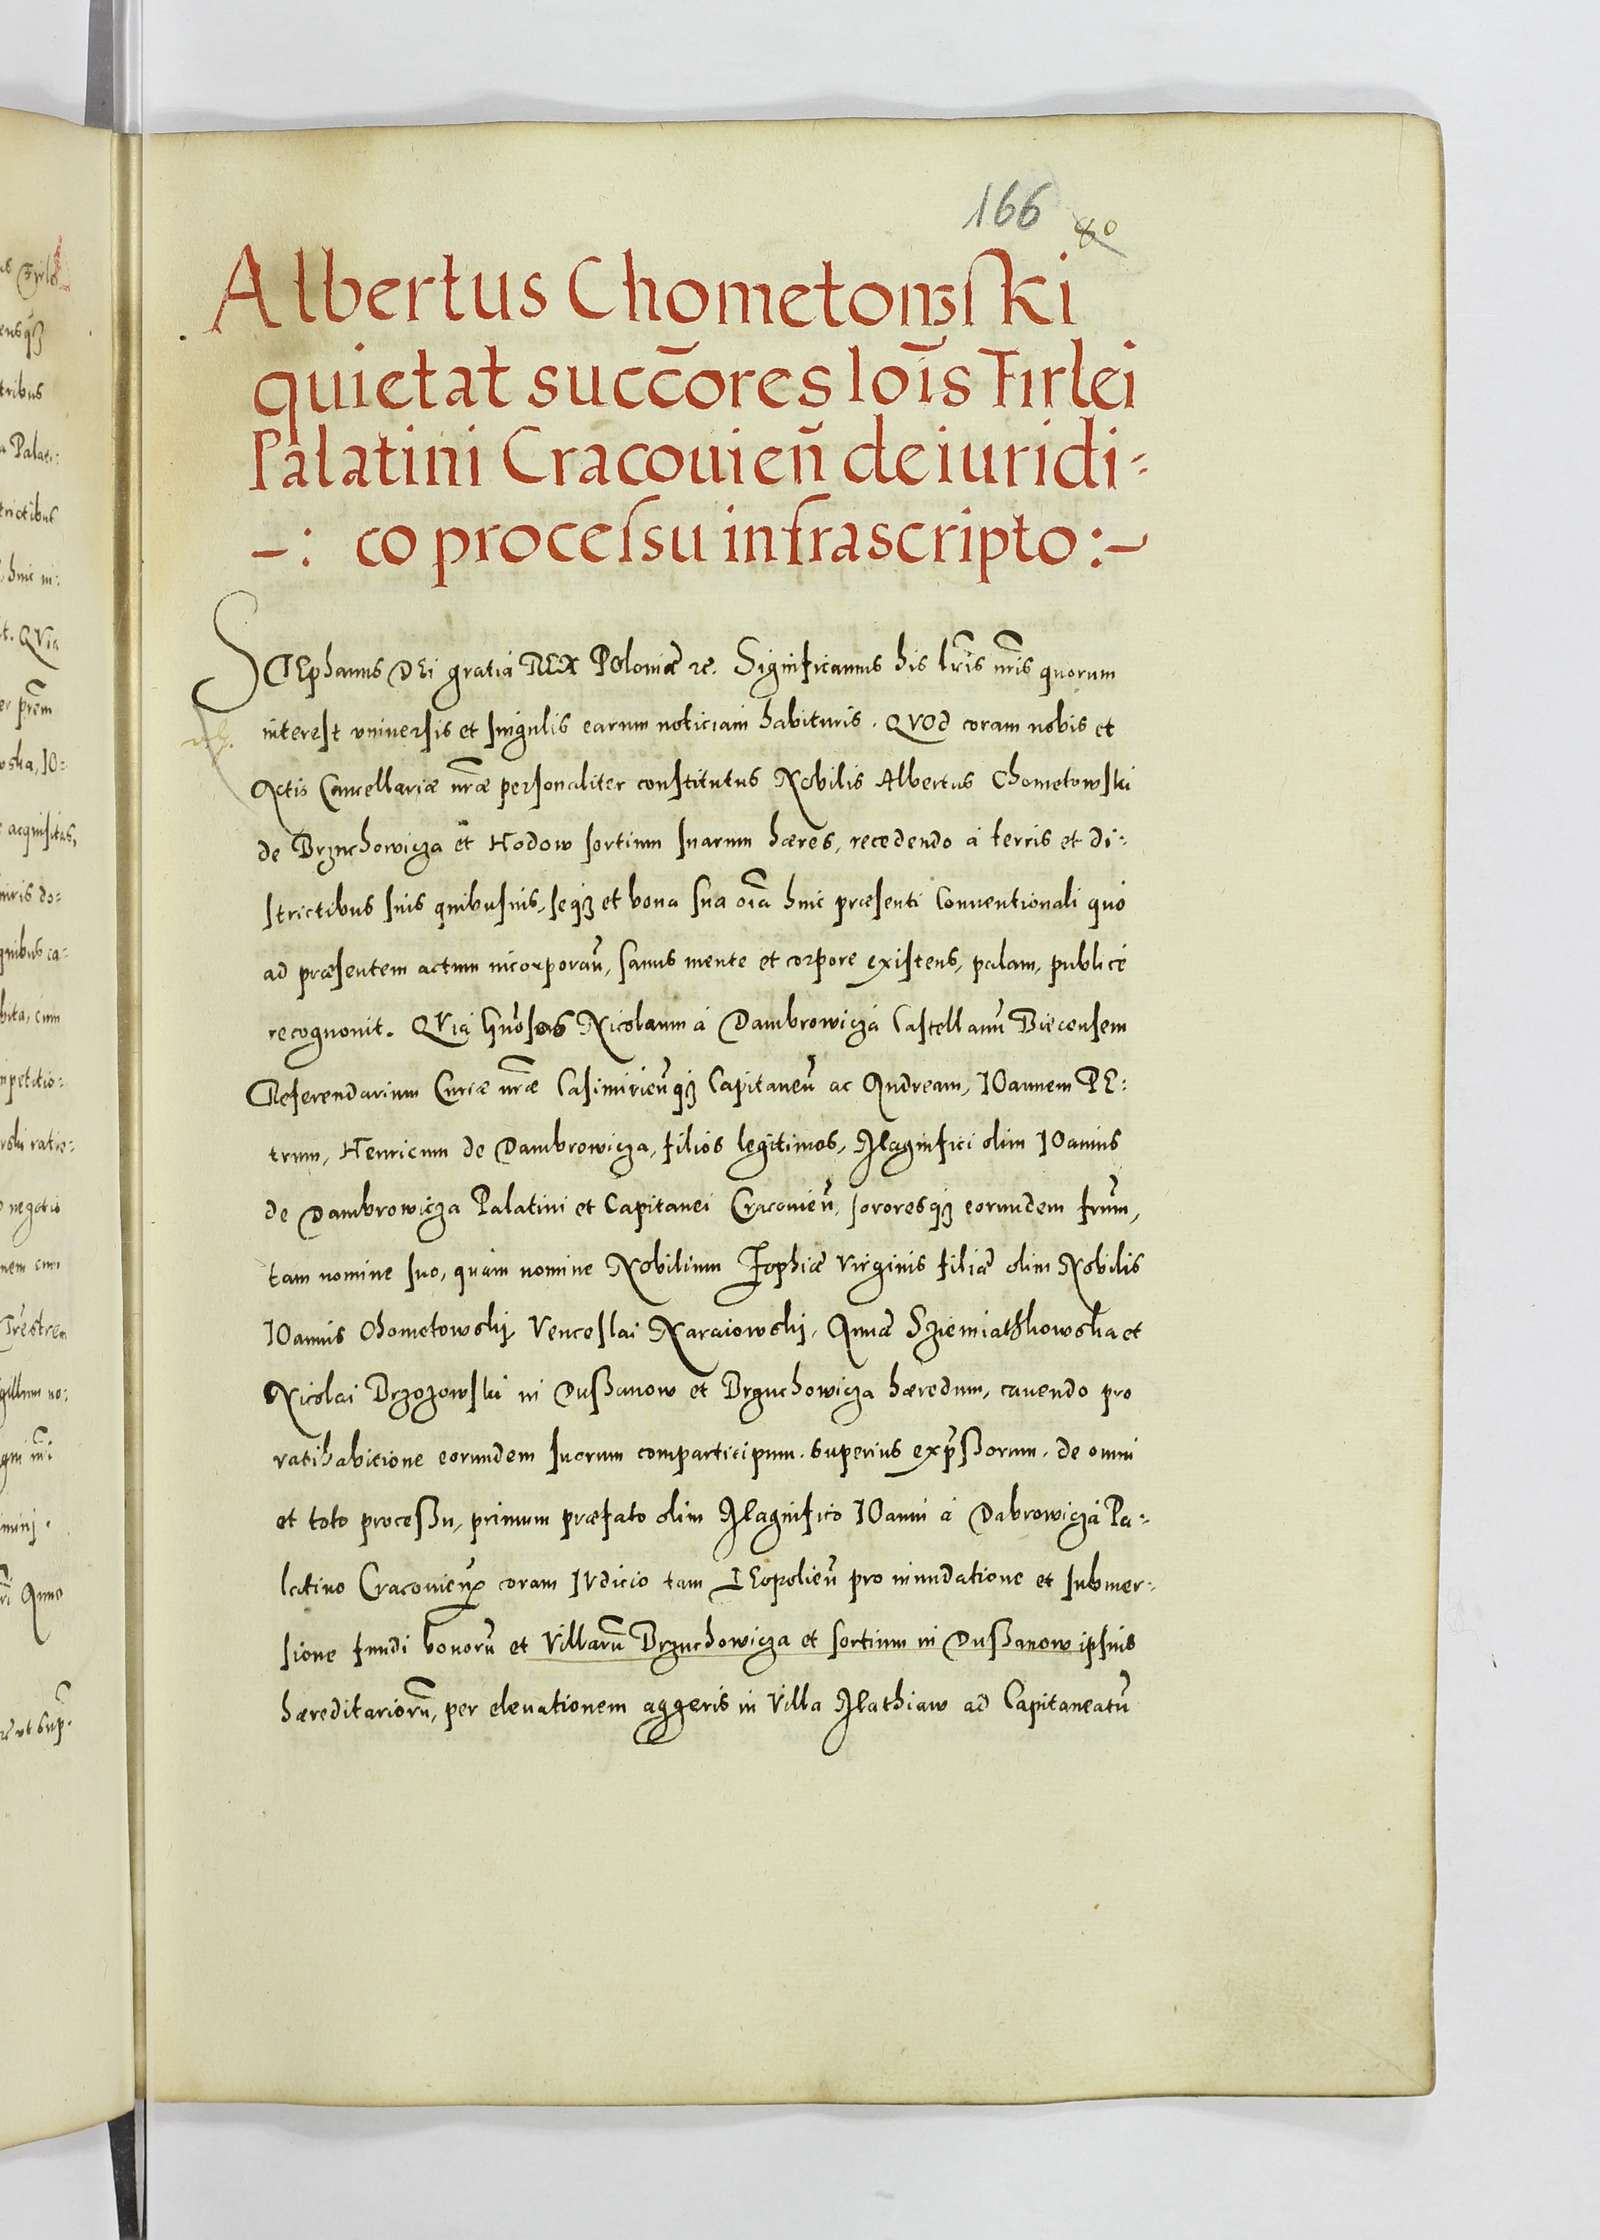 166 80
Albertus Chometowski
quietat succ̄ores Iōis Firlei
Palatini Cracouień de iuridi-
-: co processu infrascripto:-
STEphanus DEi gratia REX Poloniæ ꝛc. Significamus his lr̃is nr̃is quorum
interest vniuersis et singulis earum noticiam habituris. QVOd coram nobis et
Actis Cancellariæ nr̃æ personaliter constitutus Nobilis Albertus Chometowski
de Brzuchowicza et Hodow sortium suarum hæres, recedendo á terris et di-
strictibus suis quibusuis, seqꝫ et bona sua oĩa huic præsenti Conuentionali quó
ad præsentem actum incorporań, sanus mente et corpore existens, palam, publicé
recognouit. QVia Gñosos Nicolaum á Dambrowicza Castellanū Biecensem
Referendarium Curiæ nr̃æ Casimirieńqꝫ Capitaneū ac Andream, IOannem PE-
trum, Henricum de Dambrowicza, filiós legitimos, Magnifici olim IOannis
de Dambrowicza Palatini et Capitanei Cracouień, sororesqꝫ eorundem fr̃um,
tam nomine suo, quám nomine Nobilium Zophiæ Virginis filiæ olim Nobilis
IOannis Chometowskj, Venceslai Naraiowskj, Annæ Sziemiathkowska et
Nicolai Brzozowski in Dußanow et Brzuchowicza hæredum, cauendo pro
ratihabicione eorundem suorum comparticipum superius exp̃ßorum. de omni
et toto proceßu, primum præfato olim Magnifico IOanni á Dabrowicza Pa-
latino Cracouień coram IVdicio tam LEopolień pro inundatione et submer-
sione fundi bonorū et Villarū Brzuchowicza et sortium in Dußanow ipsius
hæreditariorū, per eleuationem aggeris in Villa Mathiaw ad Capitaneatū